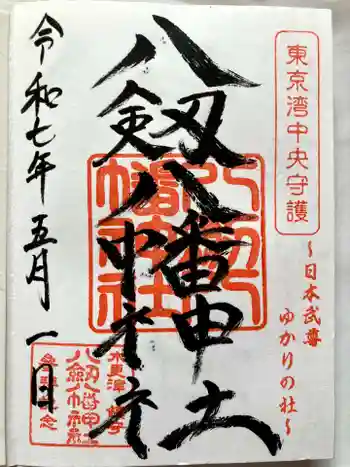 東京湾中央守護
~日本武尊
ゆかりの社~
八剱八幡神社
令和七年五月一日
八剱八幡神社
木更津 鎮守
八剱八幡神社
参拝記念